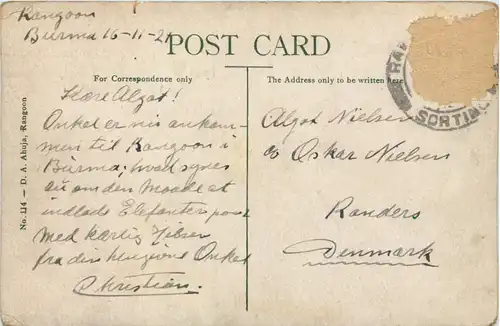 Rangoon
Burma 16-11-21
POST CARD
For Correspondence only
The Address only to be written here
Kære Algot!
Onkel er nu ankom-
men til Rangoon i
Burma, hvad synes
du om den Maade at
indlade Elefanter paa
Med kærlig Hilsen
fra din hengivne Onkel
Christian.
Algot Nielsen
c/o Oskar Nielsen
Randers
Denmark
No. 114 — D. A. Ahuja, Rangoon
RAN
SORTING